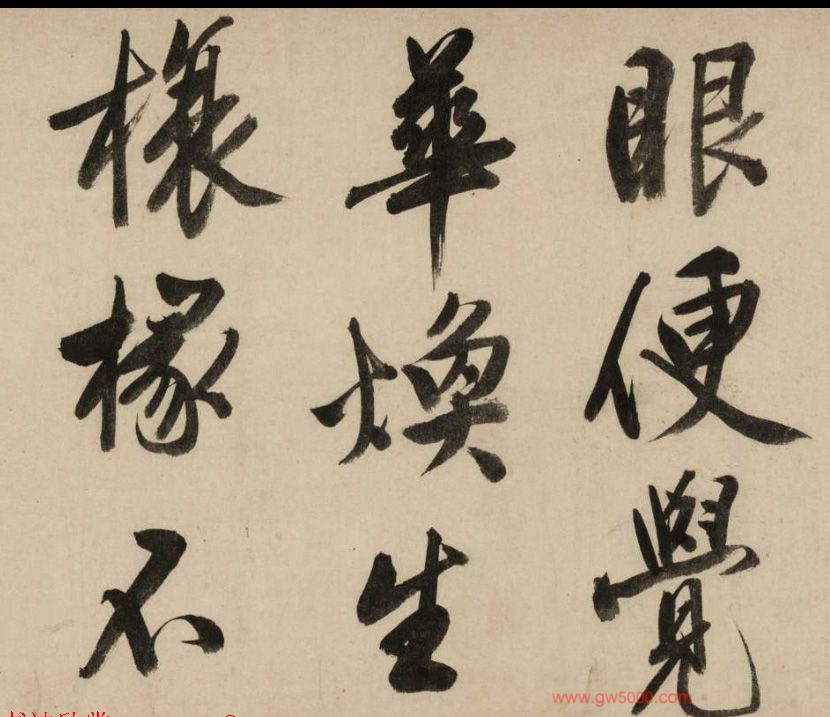 眼便覺
華煥生
榱椽不
www.gw5000.com